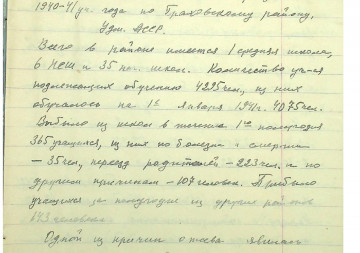 1940-41 уч. года по Граховскому району,
Удм. АССР.
Всего в районе имеется 1 средняя школа,
6 НСШ и 35 нач. школ. Количество уч-ся
подлежащих обучению 4295 чел, из них
обучалось на 1е января 1941г. 4075 чел.
Выбыло из школ в течение 1го полугодия
365 учащихся, из них по болезни и смерти
– 35 чел, переезд родителей – 223 чел. и по
другим причинам – 107 человек. Прибыло
учащихся за полугодие из других районов
143 человека.
Одной из причин отсева явилась